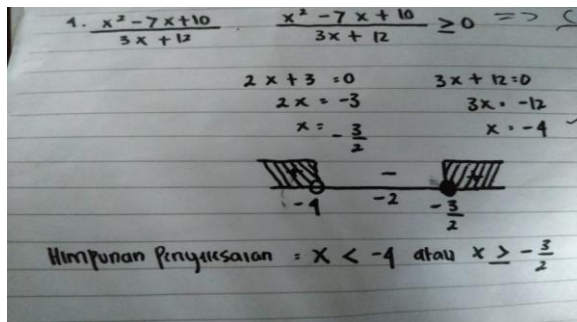 1. x² - 7x + 10 / 3x + 12 . x² - 7x + 10 / 3x + 12 ≥ 0 =>
2x + 3 = 0 3x + 12 = 0
2x = -3 3x = -12
x = -3/2 x = -4
+ - +
-4 -2 -3/2
Himpunan Penyelesaian = x < -4 atau x ≥ -3/2